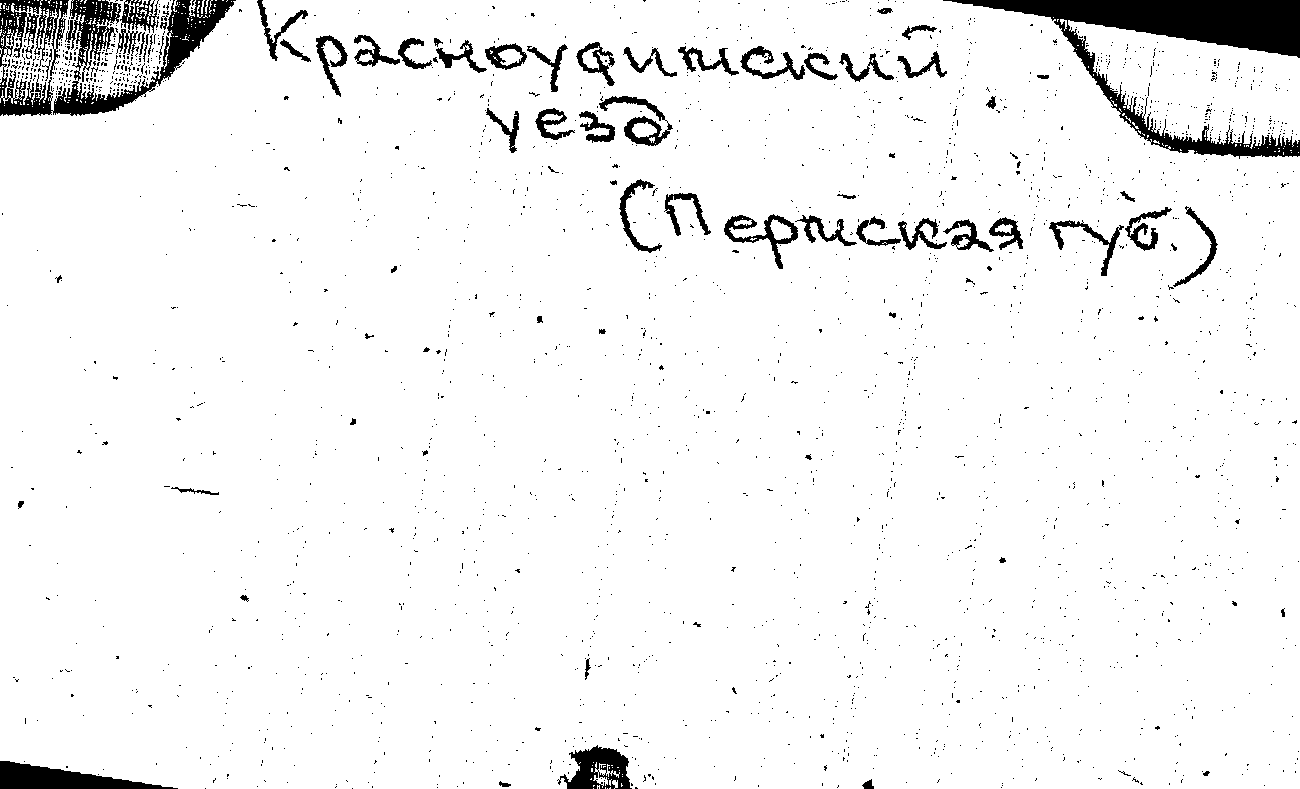 Красноуфимский
уезд
(Пермская губ.)